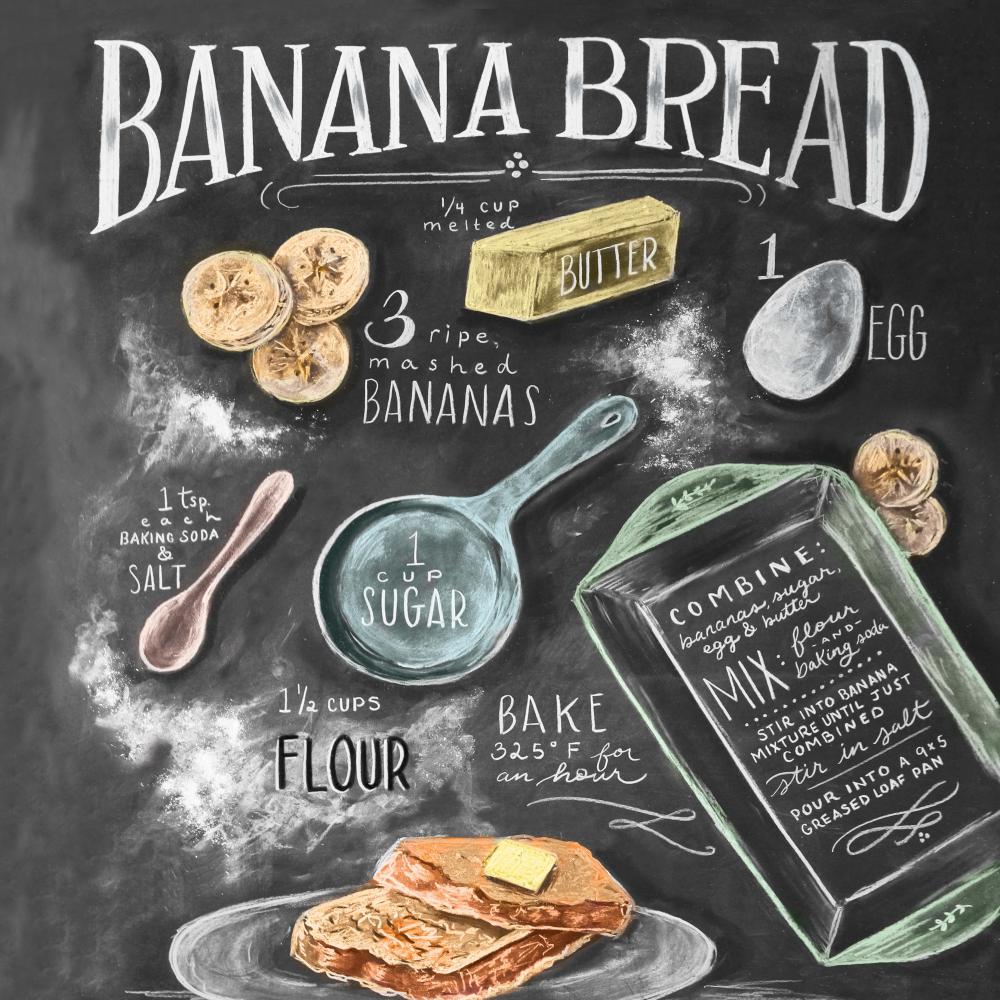 BANANA BREAD
1/4 CUP
melted
BUTTER
1
EGG
3 ripe,
mashed
BANANAS
1 tsp.
each
BAKING SODA
&
SALT
1
CUP
SUGAR
1 1/2 CUPS
FLOUR
BAKE
325° F for
an hour
COMBINE:
bananas, sugar,
egg & butter
MIX: flour
-AND-
baking soda
STIR INTO BANANA
MIXTURE UNTIL JUST
COMBINED
stir in salt
POUR INTO A 9x5
GREASED LOAF PAN